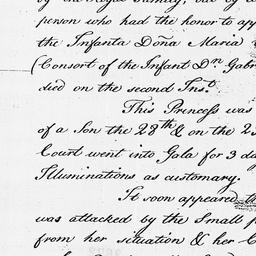 by the Royal Family, but by
person who had the honor to app
the Infanta Doña Maria
(Consort of the Infant Dn Gabr
died on the second Inst.
This Princess was
of a Son the 28th & on the 2
Court went into Gala for 3 da
Illuminations as customary.
It soon appeared th
was attacked by the Small p
from her situation & her C